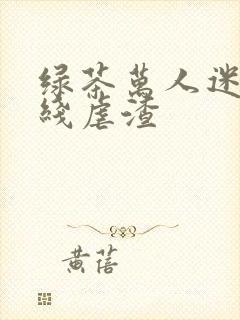 绿茶萬人迷
綫虐渣
黄蓓